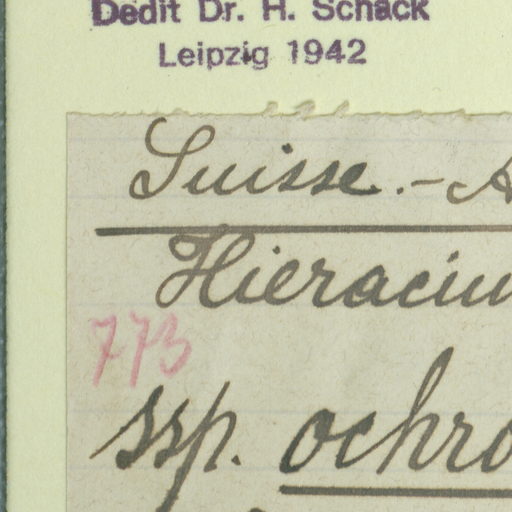 Dedit Dr. H. Schack
Leipzig 1942
Suisse.-A
Hieraciu
773
ssp. ochro